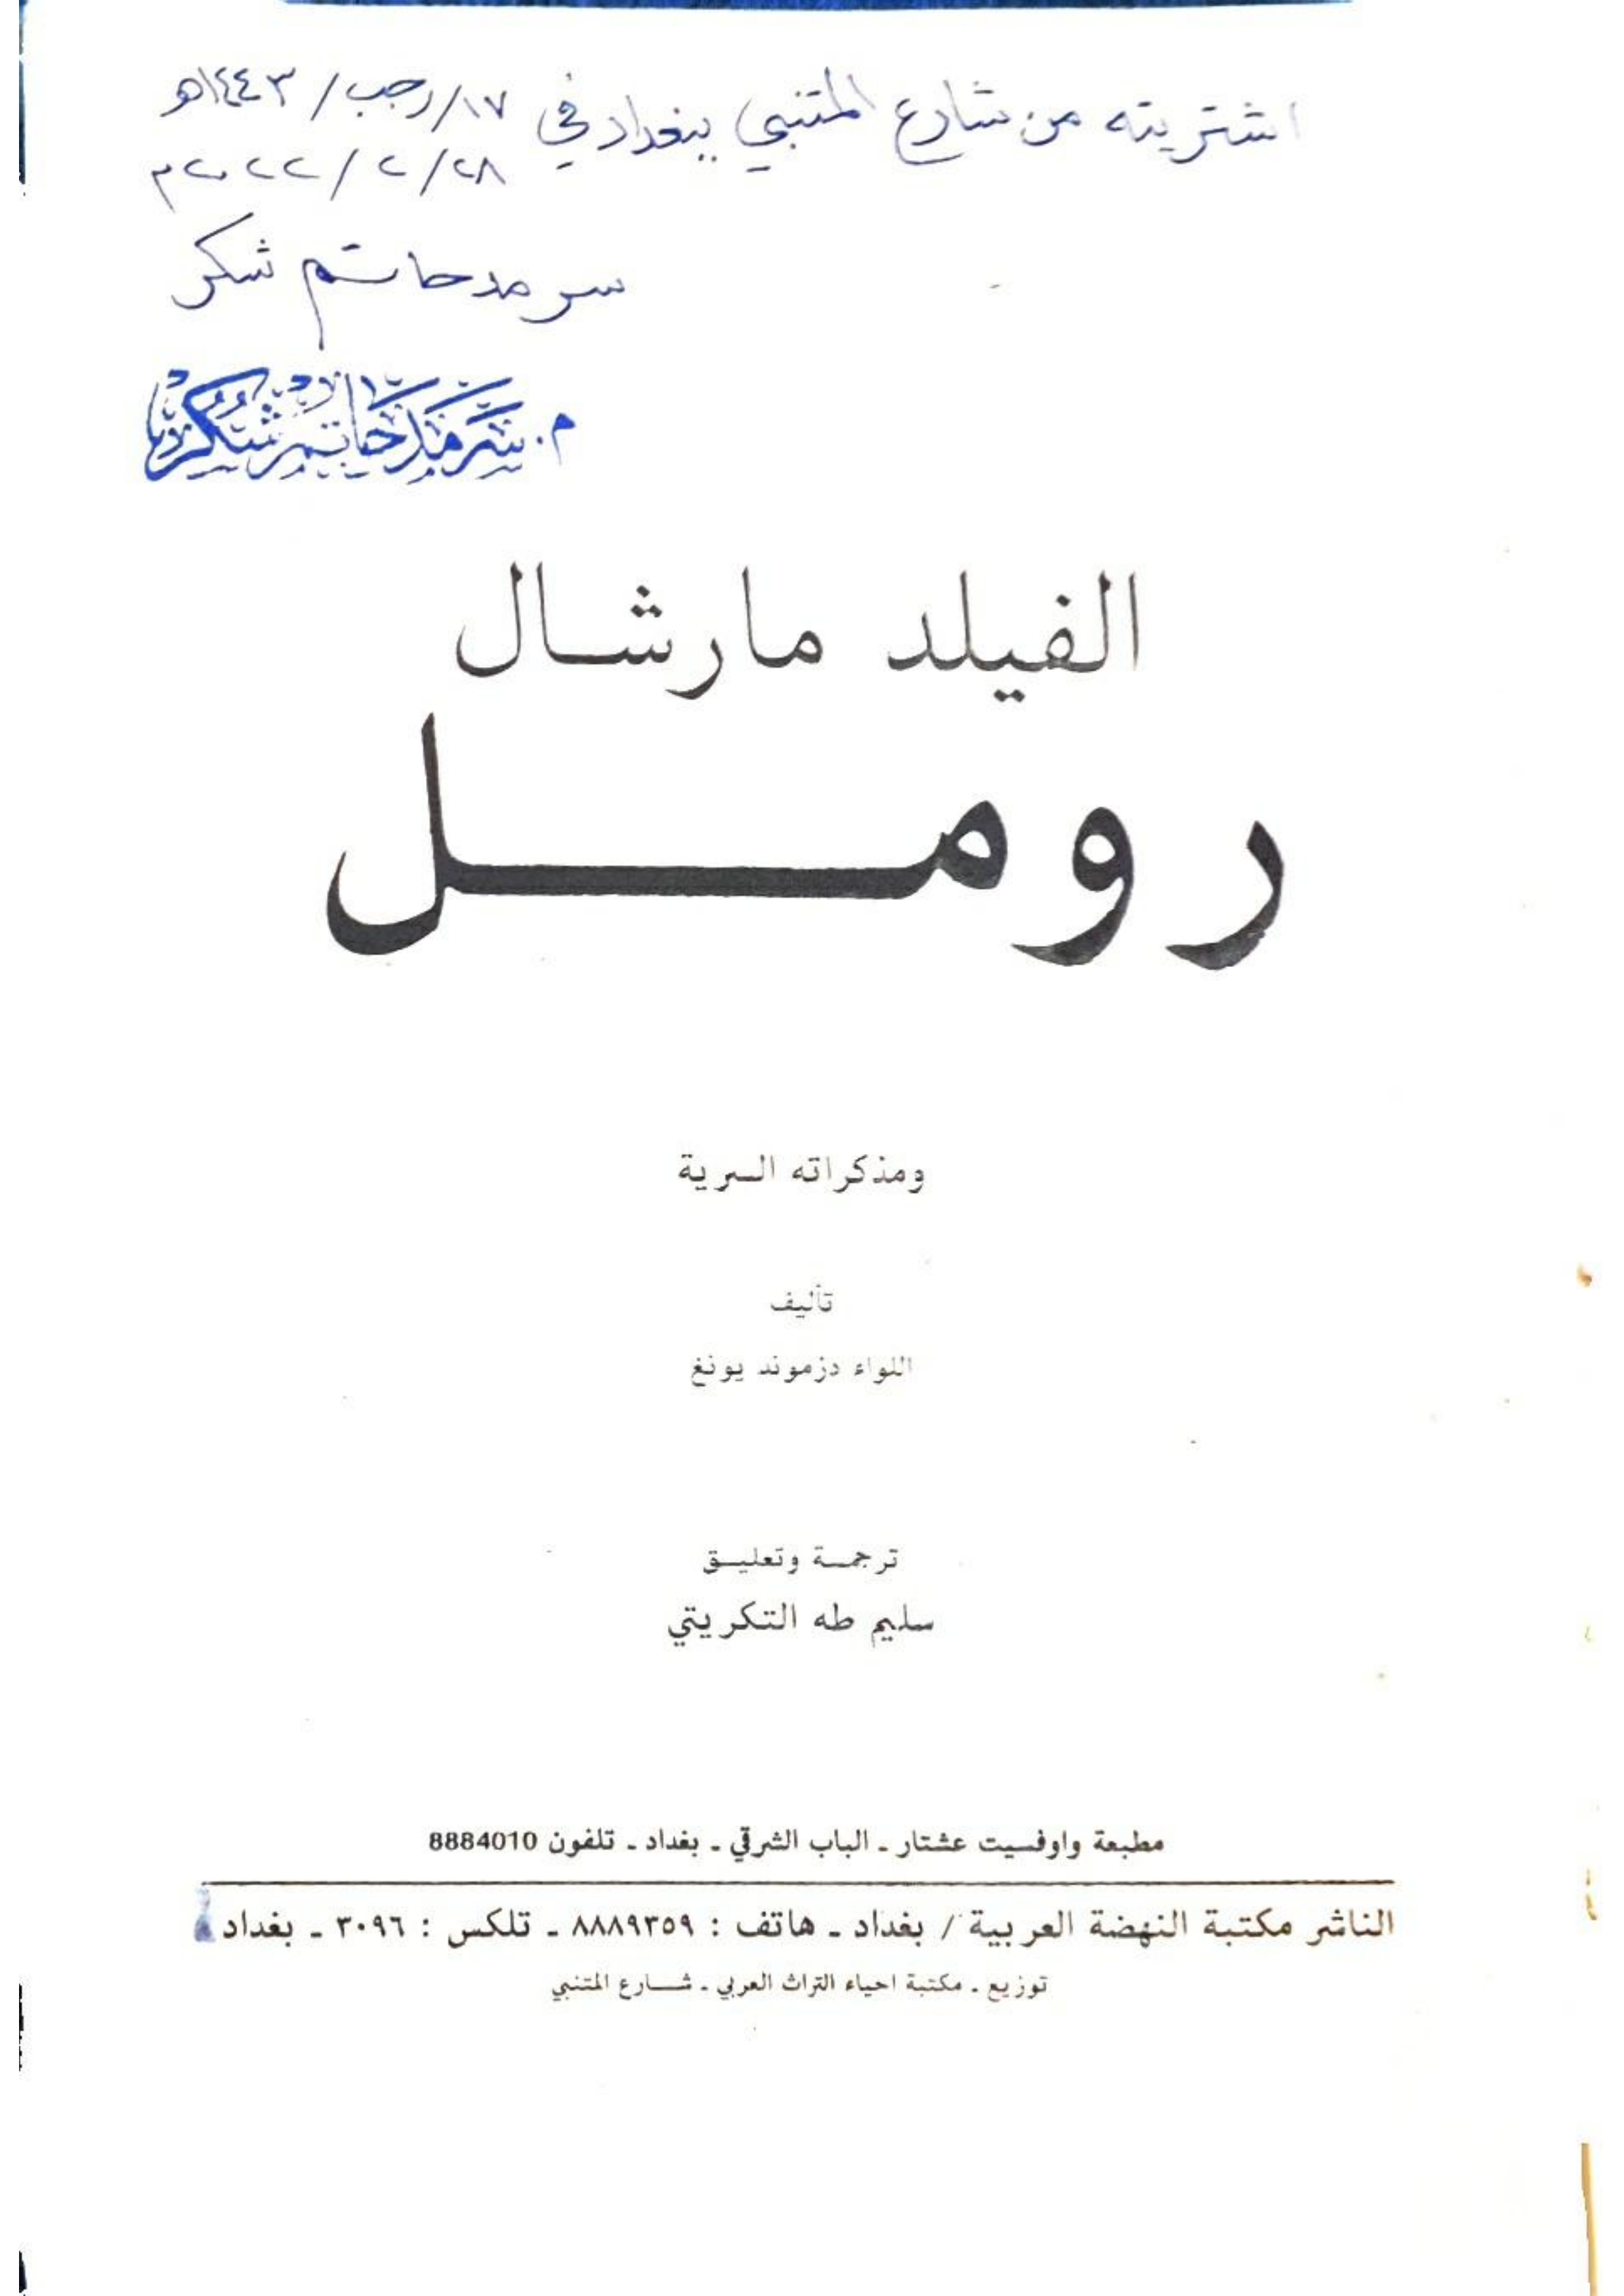 اشتريته من شارع المتنبي ببغداد في ١٧/رجب/١٤٤٣هـ
٢٨/٢/٢٠٢٢م
سرمد حاتم شكر
م. سرمد حاتم شكر
الفيلد مارشال
رومل
ومذكراته السرية
تأليف
اللواء دزموند يونغ
ترجمة وتعليق
سليم طه التكريتي
مطبعة واوفسيت عشتار ـ الباب الشرقي ـ بغداد ـ تلفون 8884010
الناشر مكتبة النهضة العربية / بغداد ـ هاتف : ٨٨٨٩٣٥٩ ـ تلكس : ٣٠٩٦ ـ بغداد
توزيع ـ مكتبة احياء التراث العربي ـ شارع المتنبي